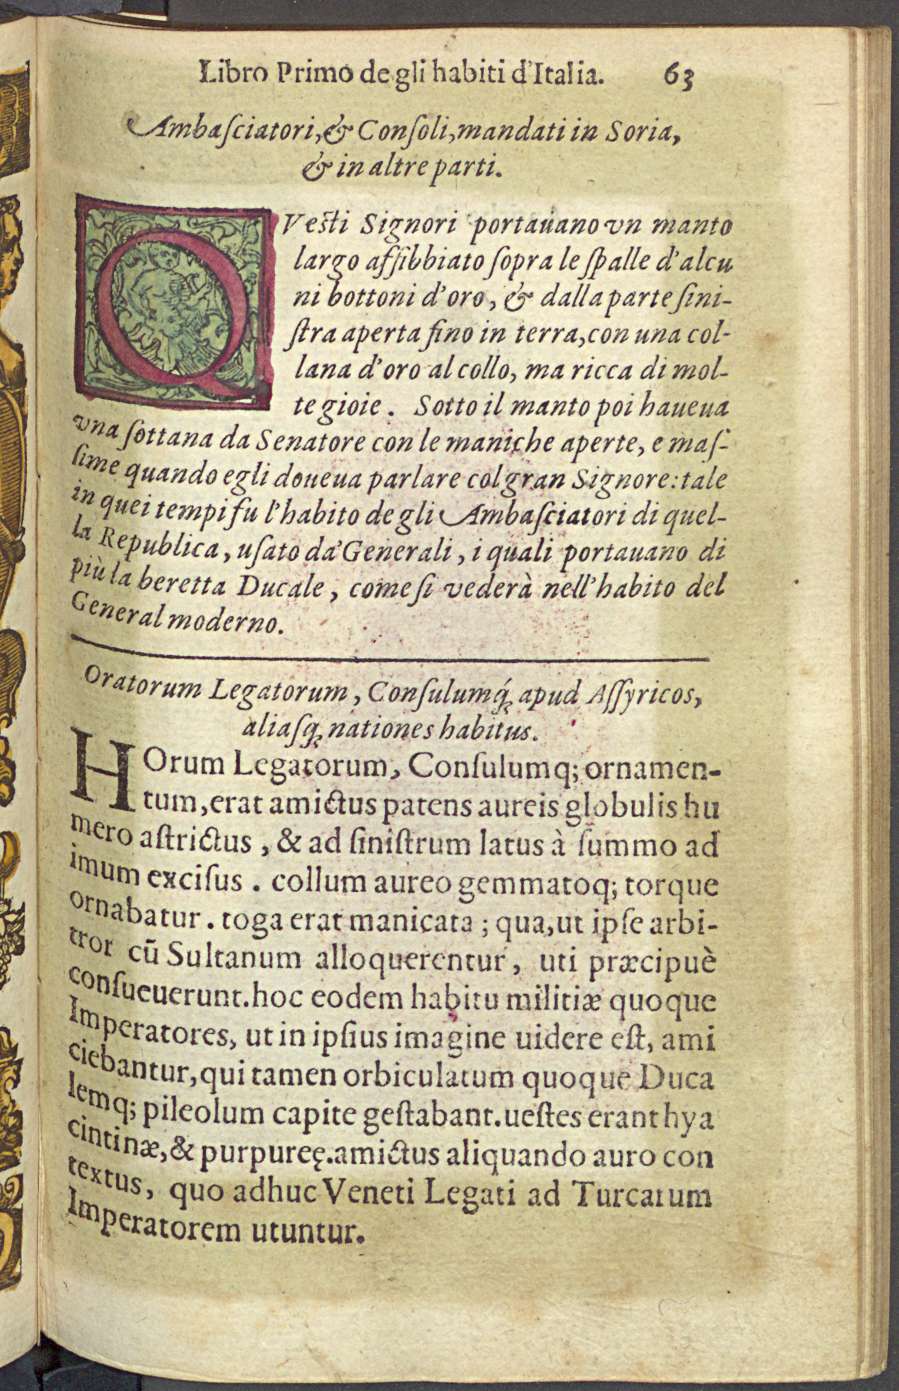 Libro Primo de gli habiti d'Italia. 63
Ambaſciatori, & Conſoli, mandati in Soria,
& in altre parti.
QVeſti Signori portauano vn manto
largo aſſibbiato ſopra le ſpalle d'alcu
ni bottoni d'oro, & dalla parte ſini-
ſtra aperta fino in terra, con una col-
lana d'oro al collo, ma ricca di mol-
te gioie. Sotto il manto poi haueua
vna ſottana da Senatore con le maniche aperte, e maſ-
ſime quando egli doueua parlare col gran Signore: tale
in quei tempi fu l'habito de gli Ambaſciatori di quel-
la Republica, uſato da' Generali, i quali portauano di
più la beretta Ducale, come ſi vederà nell'habito del
General moderno.
Oratorum Legatorum, Conſulumq́; apud Aſſyricos,
aliaſq; nationes habitus.
HOrum Legatorum, Conſulumq; ornamen-
tum, erat amictus patens aureis globulis hu
mero aſtrictus, & ad ſiniſtrum latus à ſummo ad
imum exciſus. collum aureo gemmatoq; torque
ornabatur. toga erat manicata; qua, ut ipſe arbi-
tror cū Sultanum alloquerentur, uti præcipuè
conſueuerunt. hoc eodem habitu militiæ quoque
Imperatores, ut in ipſius imagine uidere eſt, ami
ciebantur, qui tamen orbiculatum quoque Duca
lemq; pileolum capite geſtabant. ueſtes erant hya
cintinæ, & purpureę. amictus aliquando auro con
textus, quo adhuc Veneti Legati ad Turcarum
Imperatorem utuntur.